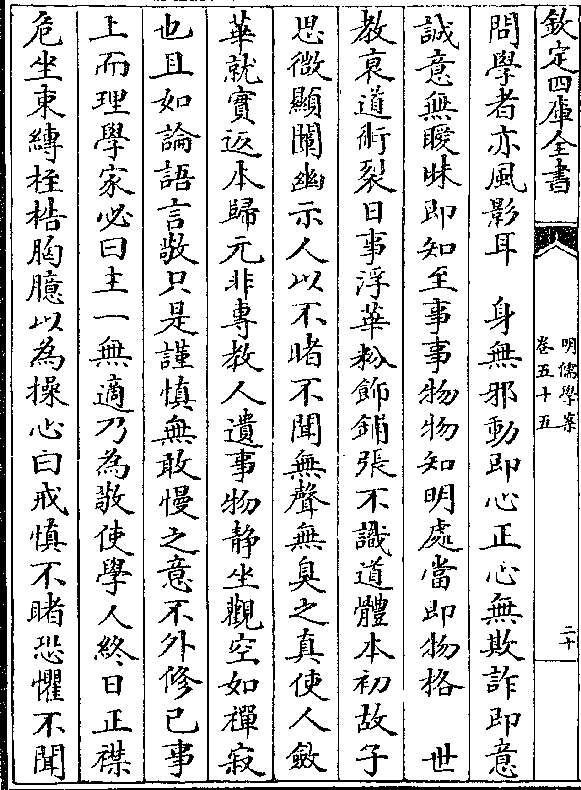 欽定四庫全書
明儒學案
卷五十五
二十
問學者亦風影耳　身無邪動即心正心無欺詐即意
誠意無曖昧即知至事事物物知明處當即物格　世
教衰道術裂日事浮華粉飾鋪張不識道體本初故子
思微顯闡幽示人以不睹不聞無聲無臭之真使人斂
華就實返本歸元非專教人遺事物静坐觀空如禪寂
也且如論語言敬只是謹慎無敢慢之意不外修己事
上而理學家必曰主一無適乃為敬使學人終日正襟
危坐束縛桎梏胸臆以為操心曰戒慎不睹恐懼不聞